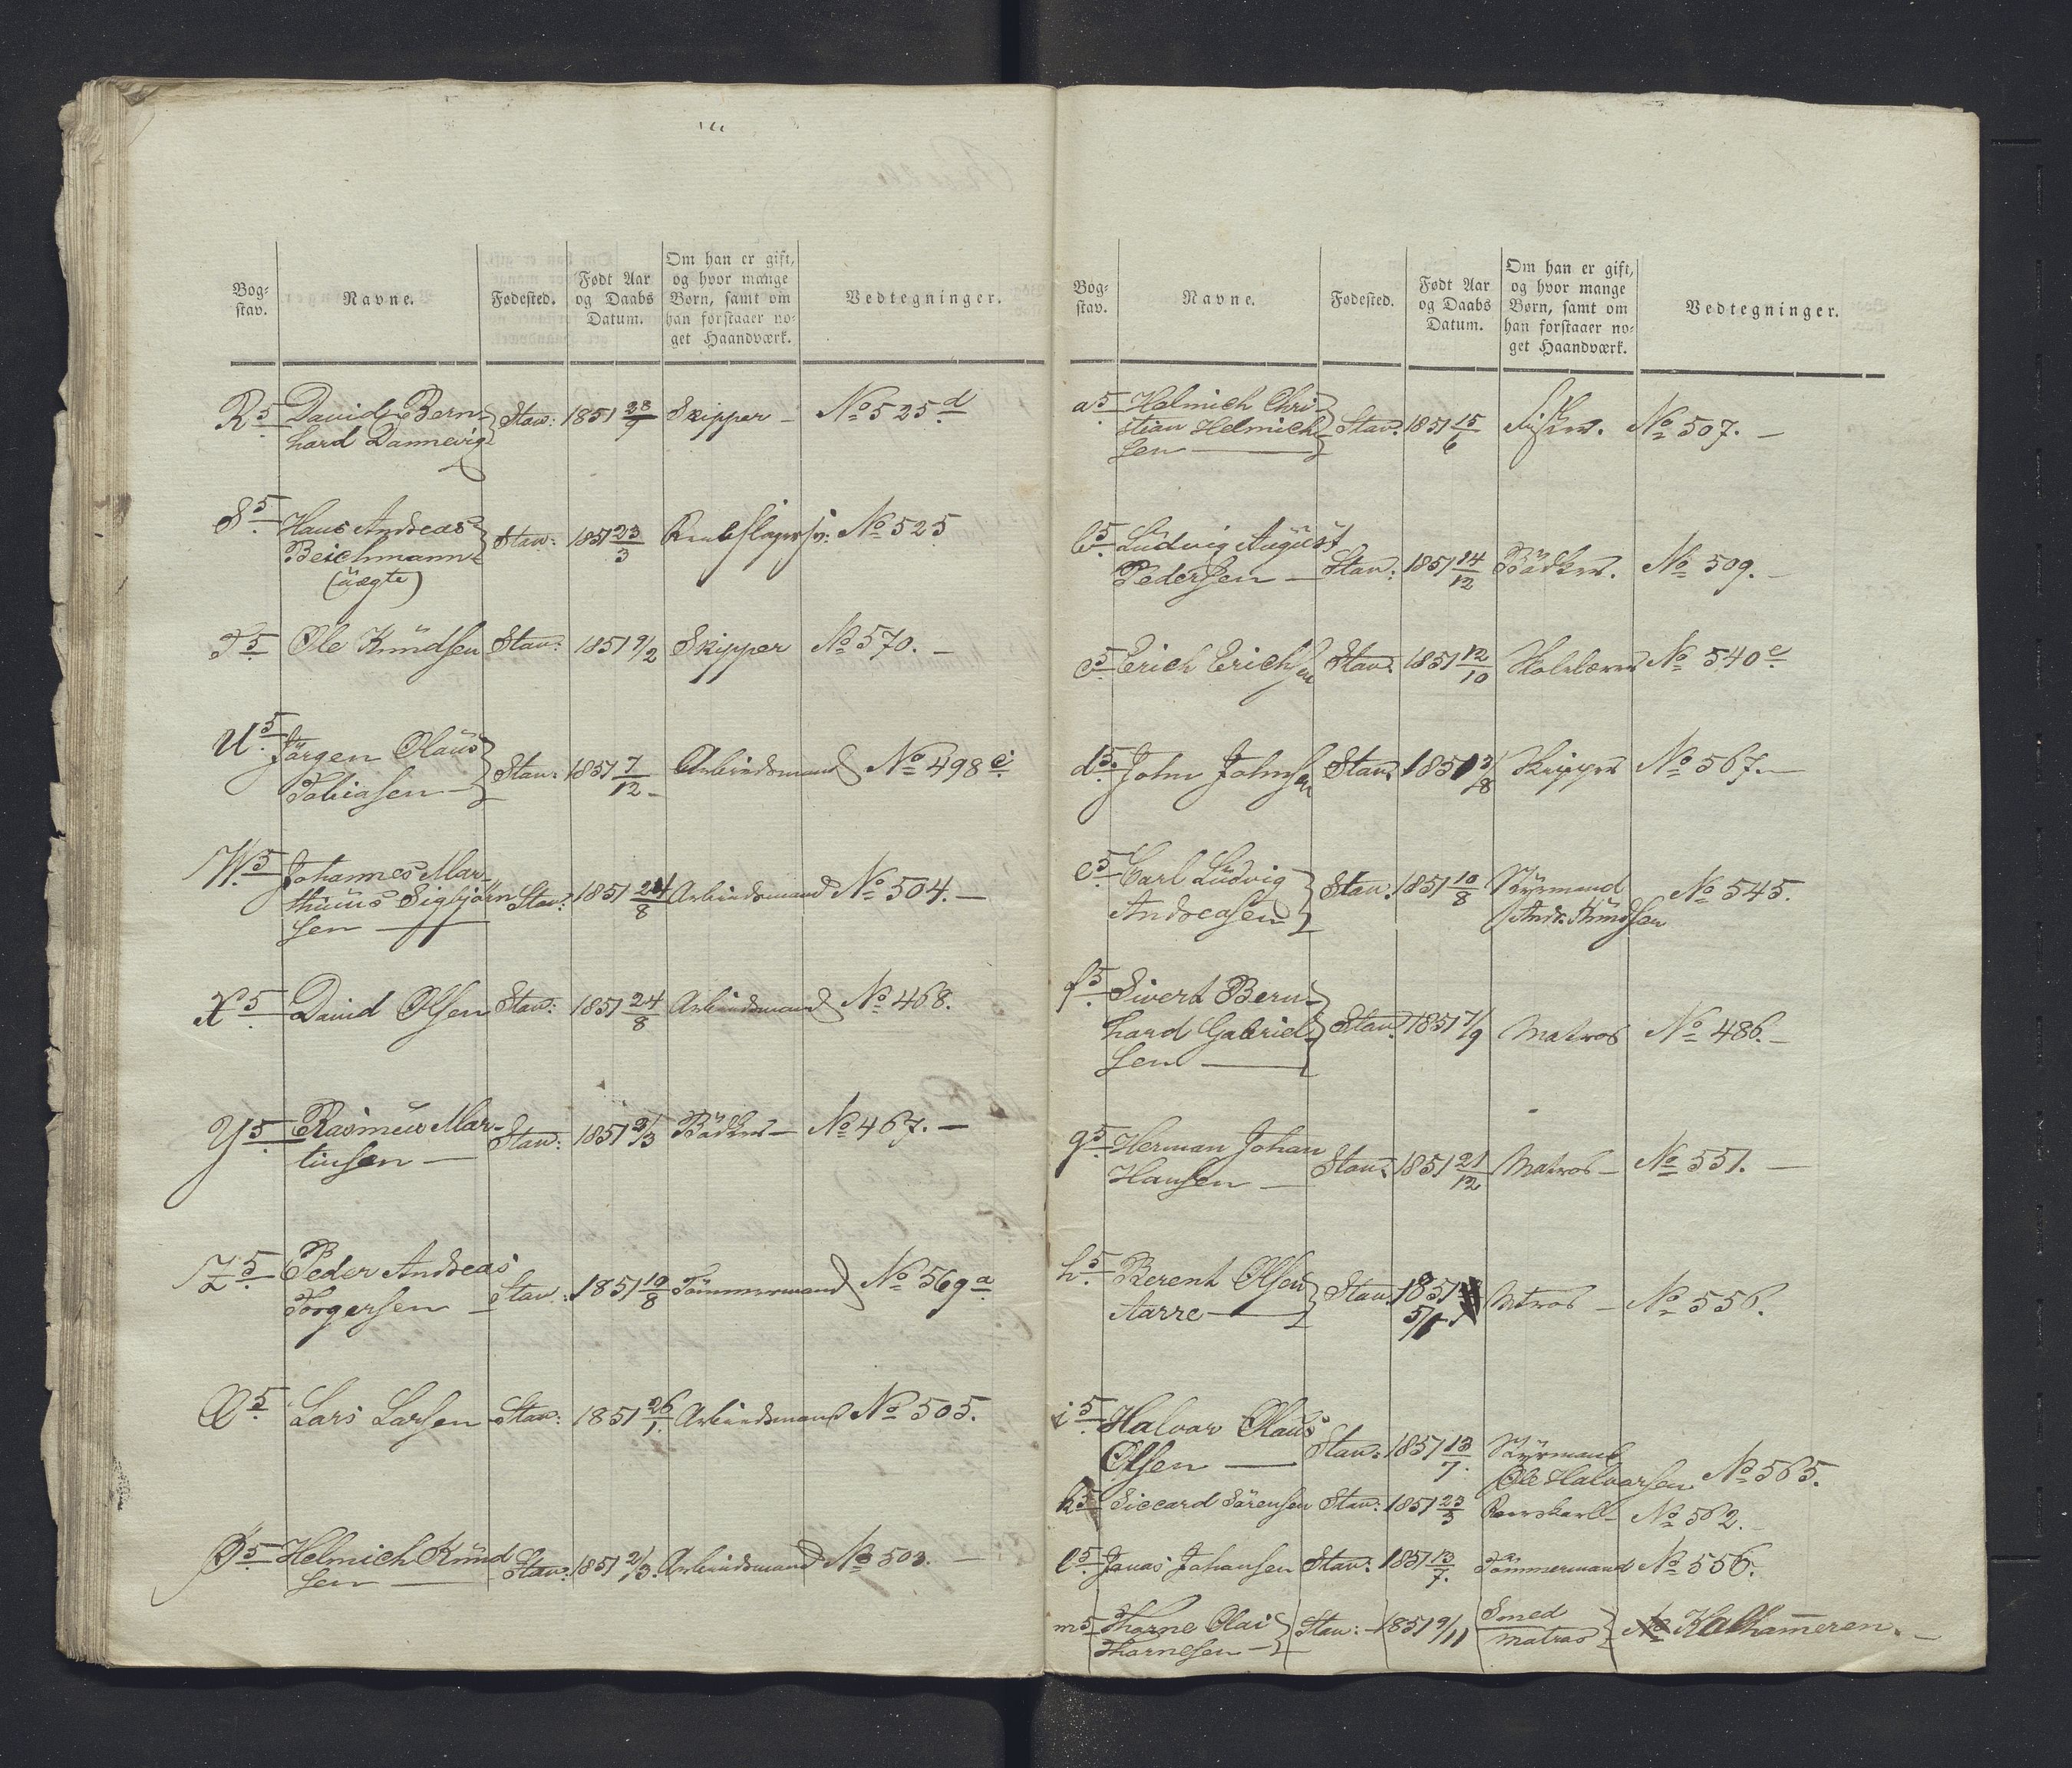 Bog-
stav.
Navne.
Fødested.
Født Aar
og Daabs
Datum.
Om han er gift,
og hvor mange
Børn, samt om
han forstaaer no-
get Haandværk.
Vedtegninger.
R5 David Bern- Stav: 1851 28/7 Skipper – No 525 d
hard Dannevig
S5 Hans Andreas Stav: 1851 23/3 No 525
Beichmann
(uægte)
T5 Ole Knudsen Stav: 1851 9/2 Skipper No 570. –
U5 Jørgen Olaus Stav: 1851 7/12 Arbeidsmand No 498 c
Tobiasen –
W5 Johannes Mar- Stav: 1851 24/8 Arbeidsmand No 504. –
thinus Sigbjørn
sen –
X5 David Olsen Stav: 1851 24/8 Arbeidsmand No 468.
Y5 Rasmus Mar- Stav: 1851 2/3 Bödker – No 467. –
tinsen –
Z5 Peder Andreas Stav: 1851 10/8 Tömmermand No 569 a
Torgersen –
Æ5 Lars Larsen Stav: 1851 26/1 Arbeidsmand No 505.
Ø5 Helmich Knud Stav: 1851 2/3 Arbeidsmand No 503. –
sen –
Bog-
stav.
Navne.
Fødested.
Født Aar
og Daabs
Datum.
Om han er gift,
og hvor mange
Børn, samt om
han forstaaer no-
get Haandværk.
Vedtegninger.
a5 Helmich Chri- Stav: 1851 15/6 Fisker. No 507. –
stian Helmich
sen –
b5 Ludvig August
Pedersen – Stav: 1851 14/12 Bödker. No 509. –
c5 Erich Erichsen Stav: 1851 12/10 Skolelærer No 540 c
d5 John Johnsen Stav: 1851 3/8 Skipper No 567. –
e5 Carl Ludvig Stav: 1851 10/8 Styrmand No 545.
Andreasen Andr. Knudsen
f5 Sivert Bern- Stav: 1851 7/9 Matros No 486. –
hard Gabriel-
sen –
g5 Herman Johan Stav: 1851 21/12 Matros – No 551. –
Hansen –
h5 Berent Olsen Stav: 1851 Matros – No 556.
Aarre – 5/1
i5 Halvor Olaus Stav: 1851 13/7 Styrmand
Olsen – Ole Halvorsen No 565.
k5 Siccard Sörensen Stav: 1851 23/3 No 562. –
l5 Jonas Johansen Stav: 1851 13/7. Tömmermand No 556.
m5 Thorne Olai Stav: – 1851 9/11 Smed
Thornesen – Matros Kalhammeren. –